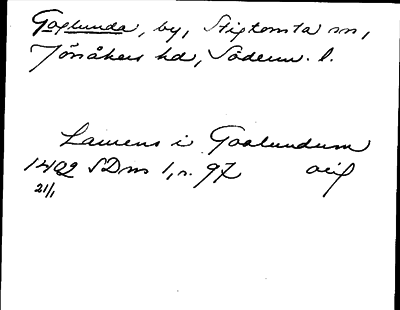 Goglunda, by, Stigtomta sn,
Jönåkers hd, Söderm. l.
Laurens i Goolundum
1402 SDns 1, n. 97 orig
21/1